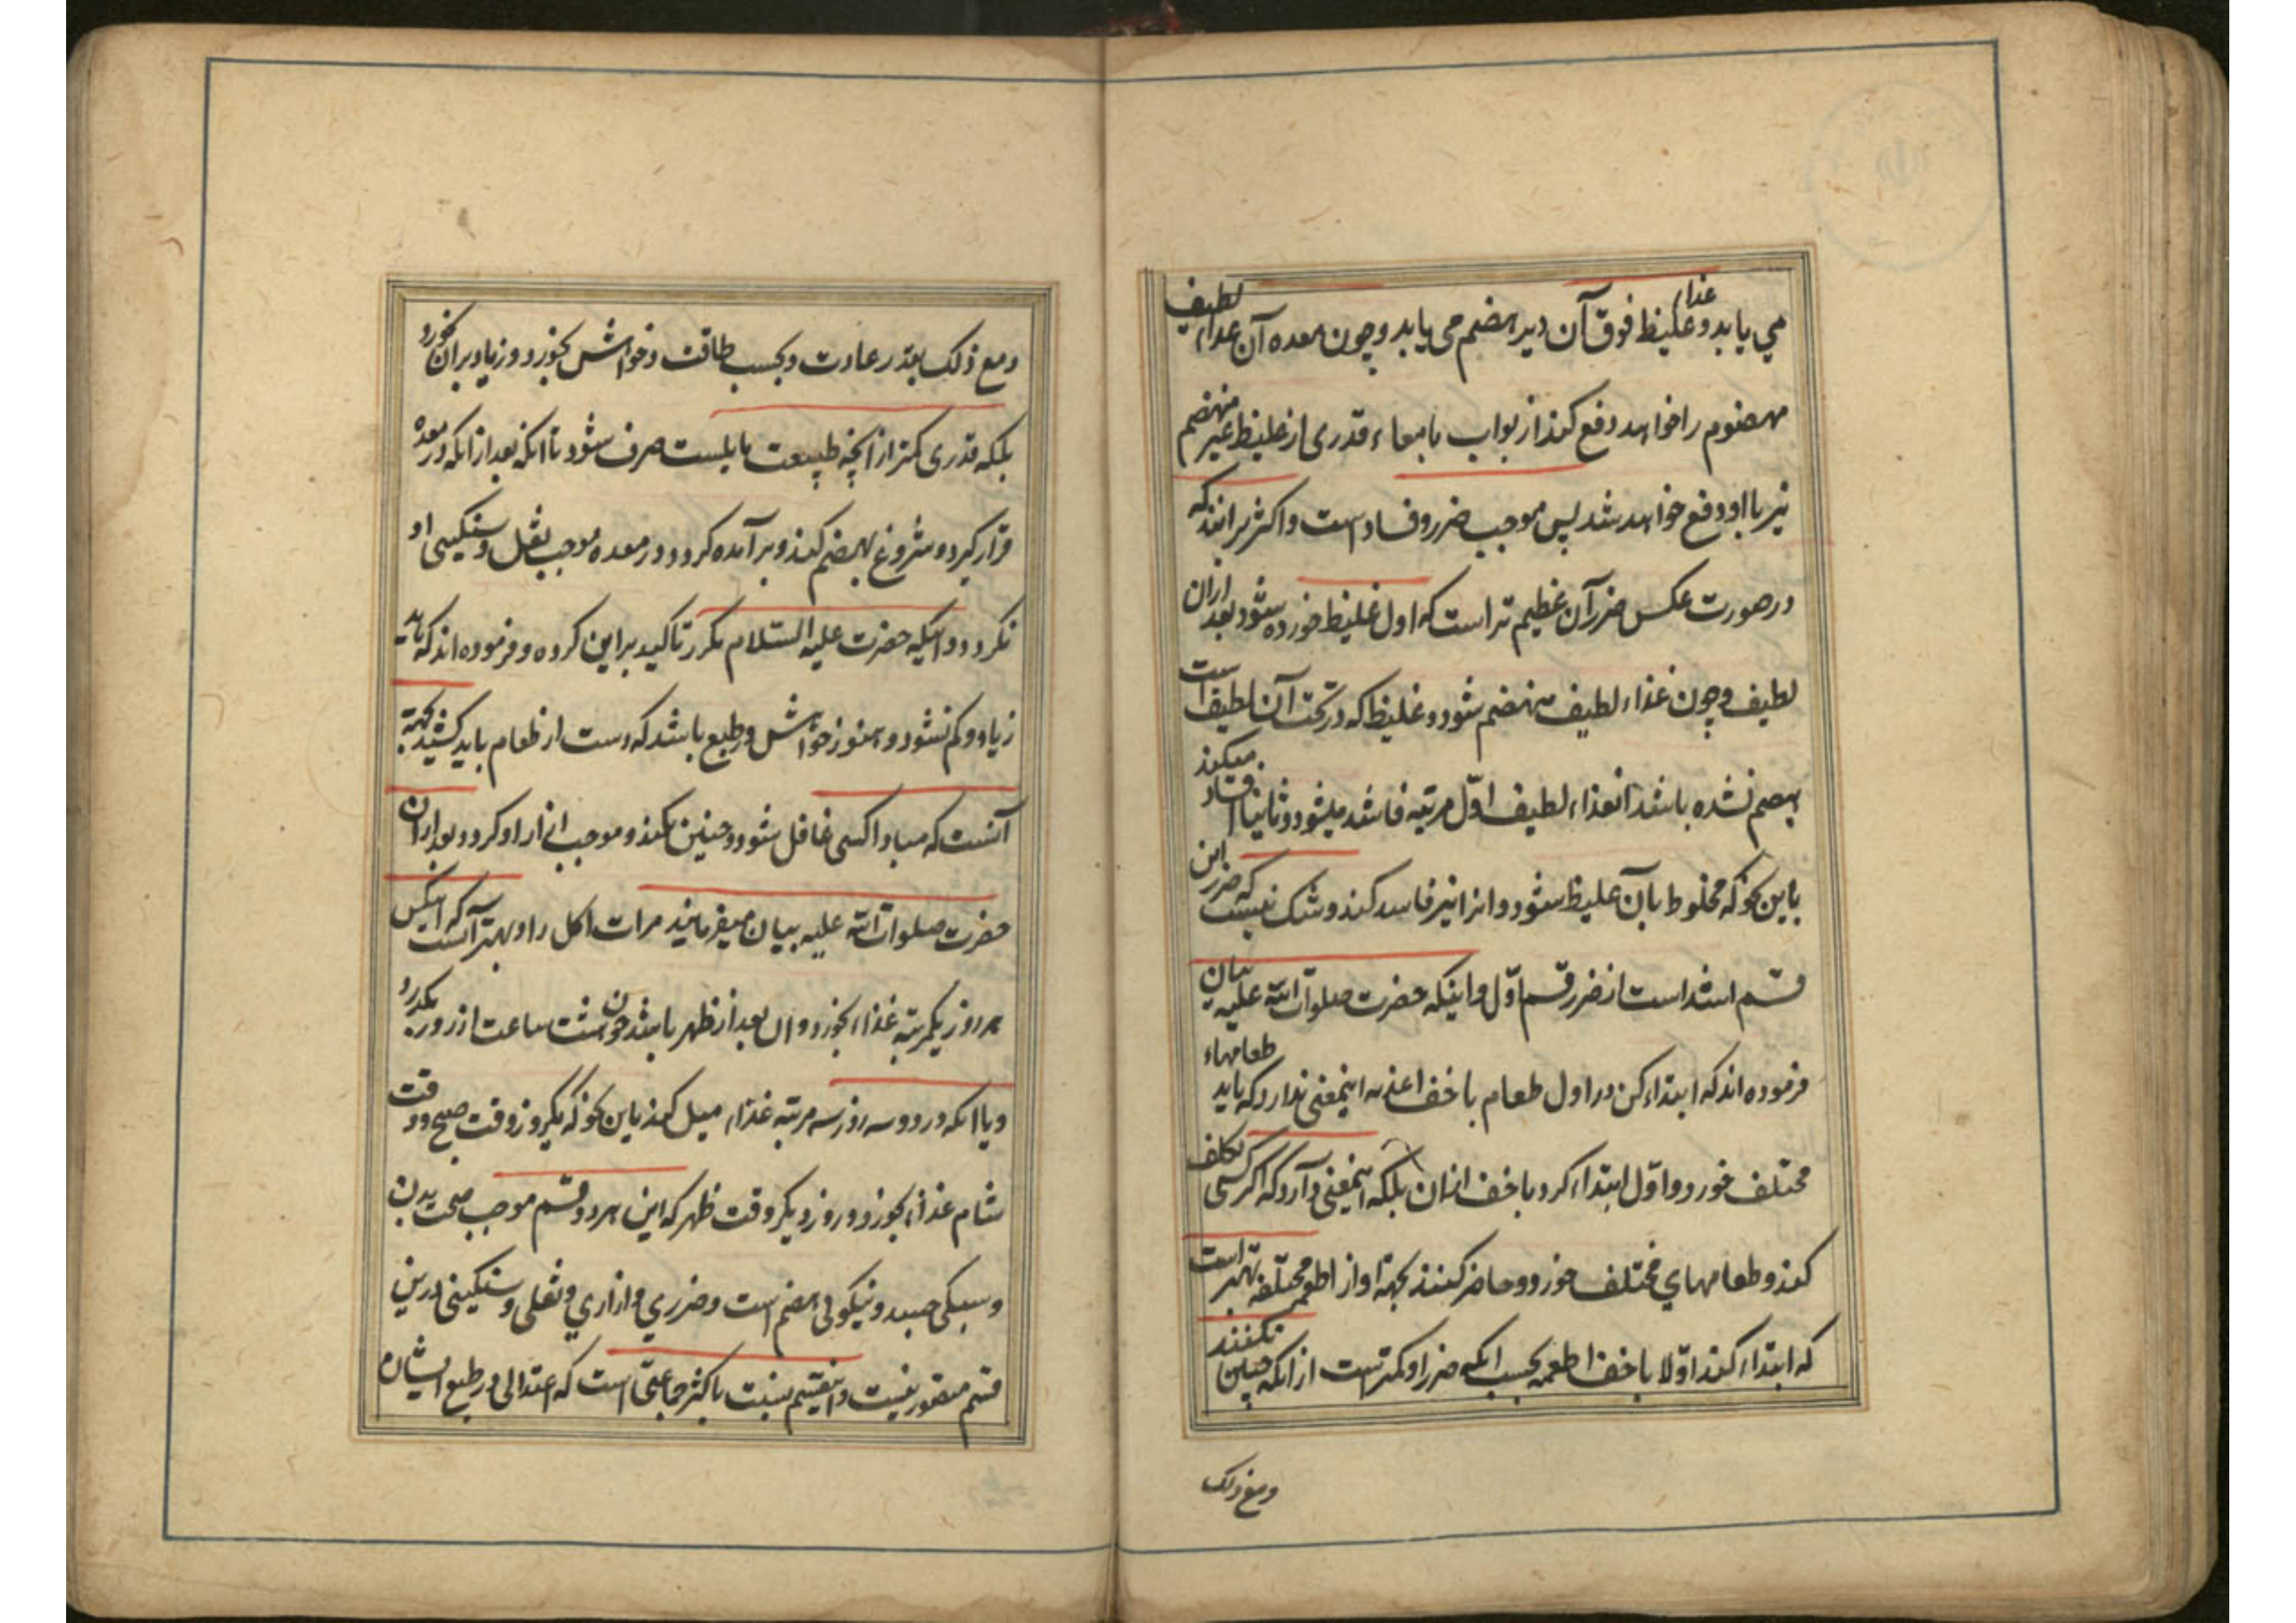 می یابد و غذاء غلیظ فوق آن دیر هضم می یابد و چون معده آن غذاء لطیف
مهضوم را خواهد دفع کند از بواب بامعاء قدری از غلیظ غیر منهضم
نیز با او دفع خواهد شد پس موجب ضرر و فساد است و اکثر برانند که
در صورت عکس ضرر آن عظیم تر است که اول غلیظ خورده شود بعد ازان
لطیف و چون غذاء لطیف منهضم شود و غلیظ که در تحت آن لطیف است
هضم نشده باشد آنغذاء لطیف اوّل مرتبه فاسد میشود و ثانیا افساد میکند
باین نحو که مخلوط بآن غلیظ شود و انرا نیز فاسد کند و شک نیست که ضرر این
قسم اشد است از ضرر قسم اوّل و اینکه حضرت صلوات الله علیه بیان
فرموده اند که ابتداء کن در اول طعام باخف اغذیه اینمعنی ندارد که باید طعامهاء
مختلف خورد و اوّل ابتداء کرد باخف ازان بلکه اینمعنی دارد که اگر کسی تکلف
کند و طعامهای مختلف خورد و حاضر کنند بجهة او از اطعمه مختلفه بهتر است
که ابتداء کند اوّلا باخف اطعمه بحسب انکه ضرر او کمتر است از انکه چنین نکنند
و مع ذلک
و مع ذلک بقدر عادت و بحسب طاقت و خواهش بخورد و زیاد بران نخورد
بلکه قدری کمتر از آنچه طبیعت مایلست صرف شود تا انکه بعد از انکه در معده
قرار گیرد و شروع بهضم کند و بر آمده کردد در معده موجب ثقل و سنکینی او
نکردد و اینکه حضرت علیه السّلام مکرر تاکید براین کرده و فرموده اند که باید
زیاد و کم نشود و هنوز خواهش در طبع باشد که دست از طعام باید کشید بجهة
آنست که مبادا کسی غافل شود و چنین نکند و موجب ازار او کردد و بعد ازان
حضرت صلوات الله علیه بیان میفرمایند مرات اکل را و بهتر آنست که اینکس
هر روز یکمرتبه غذاء بخورد و ان بعد از ظهر باشد چون هشت ساعت از روز بکذرد
و یا انکه در دو سه روز سه مرتبه غذاء میل کند باین نحو که یکروز وقت صبح و وقت
شام غذاء بخورد و روز دیکر وقت ظهر که این هر دو قسم موجب صحت بدن
و سبکی جسد و نیکوئی هضم است و ضرری و ازاری و ثقلی و سنکینی درین
قسم متصور نیست و اینقسم نسبت باکثر جماعتی است که اعتدالی در طبع ایشان